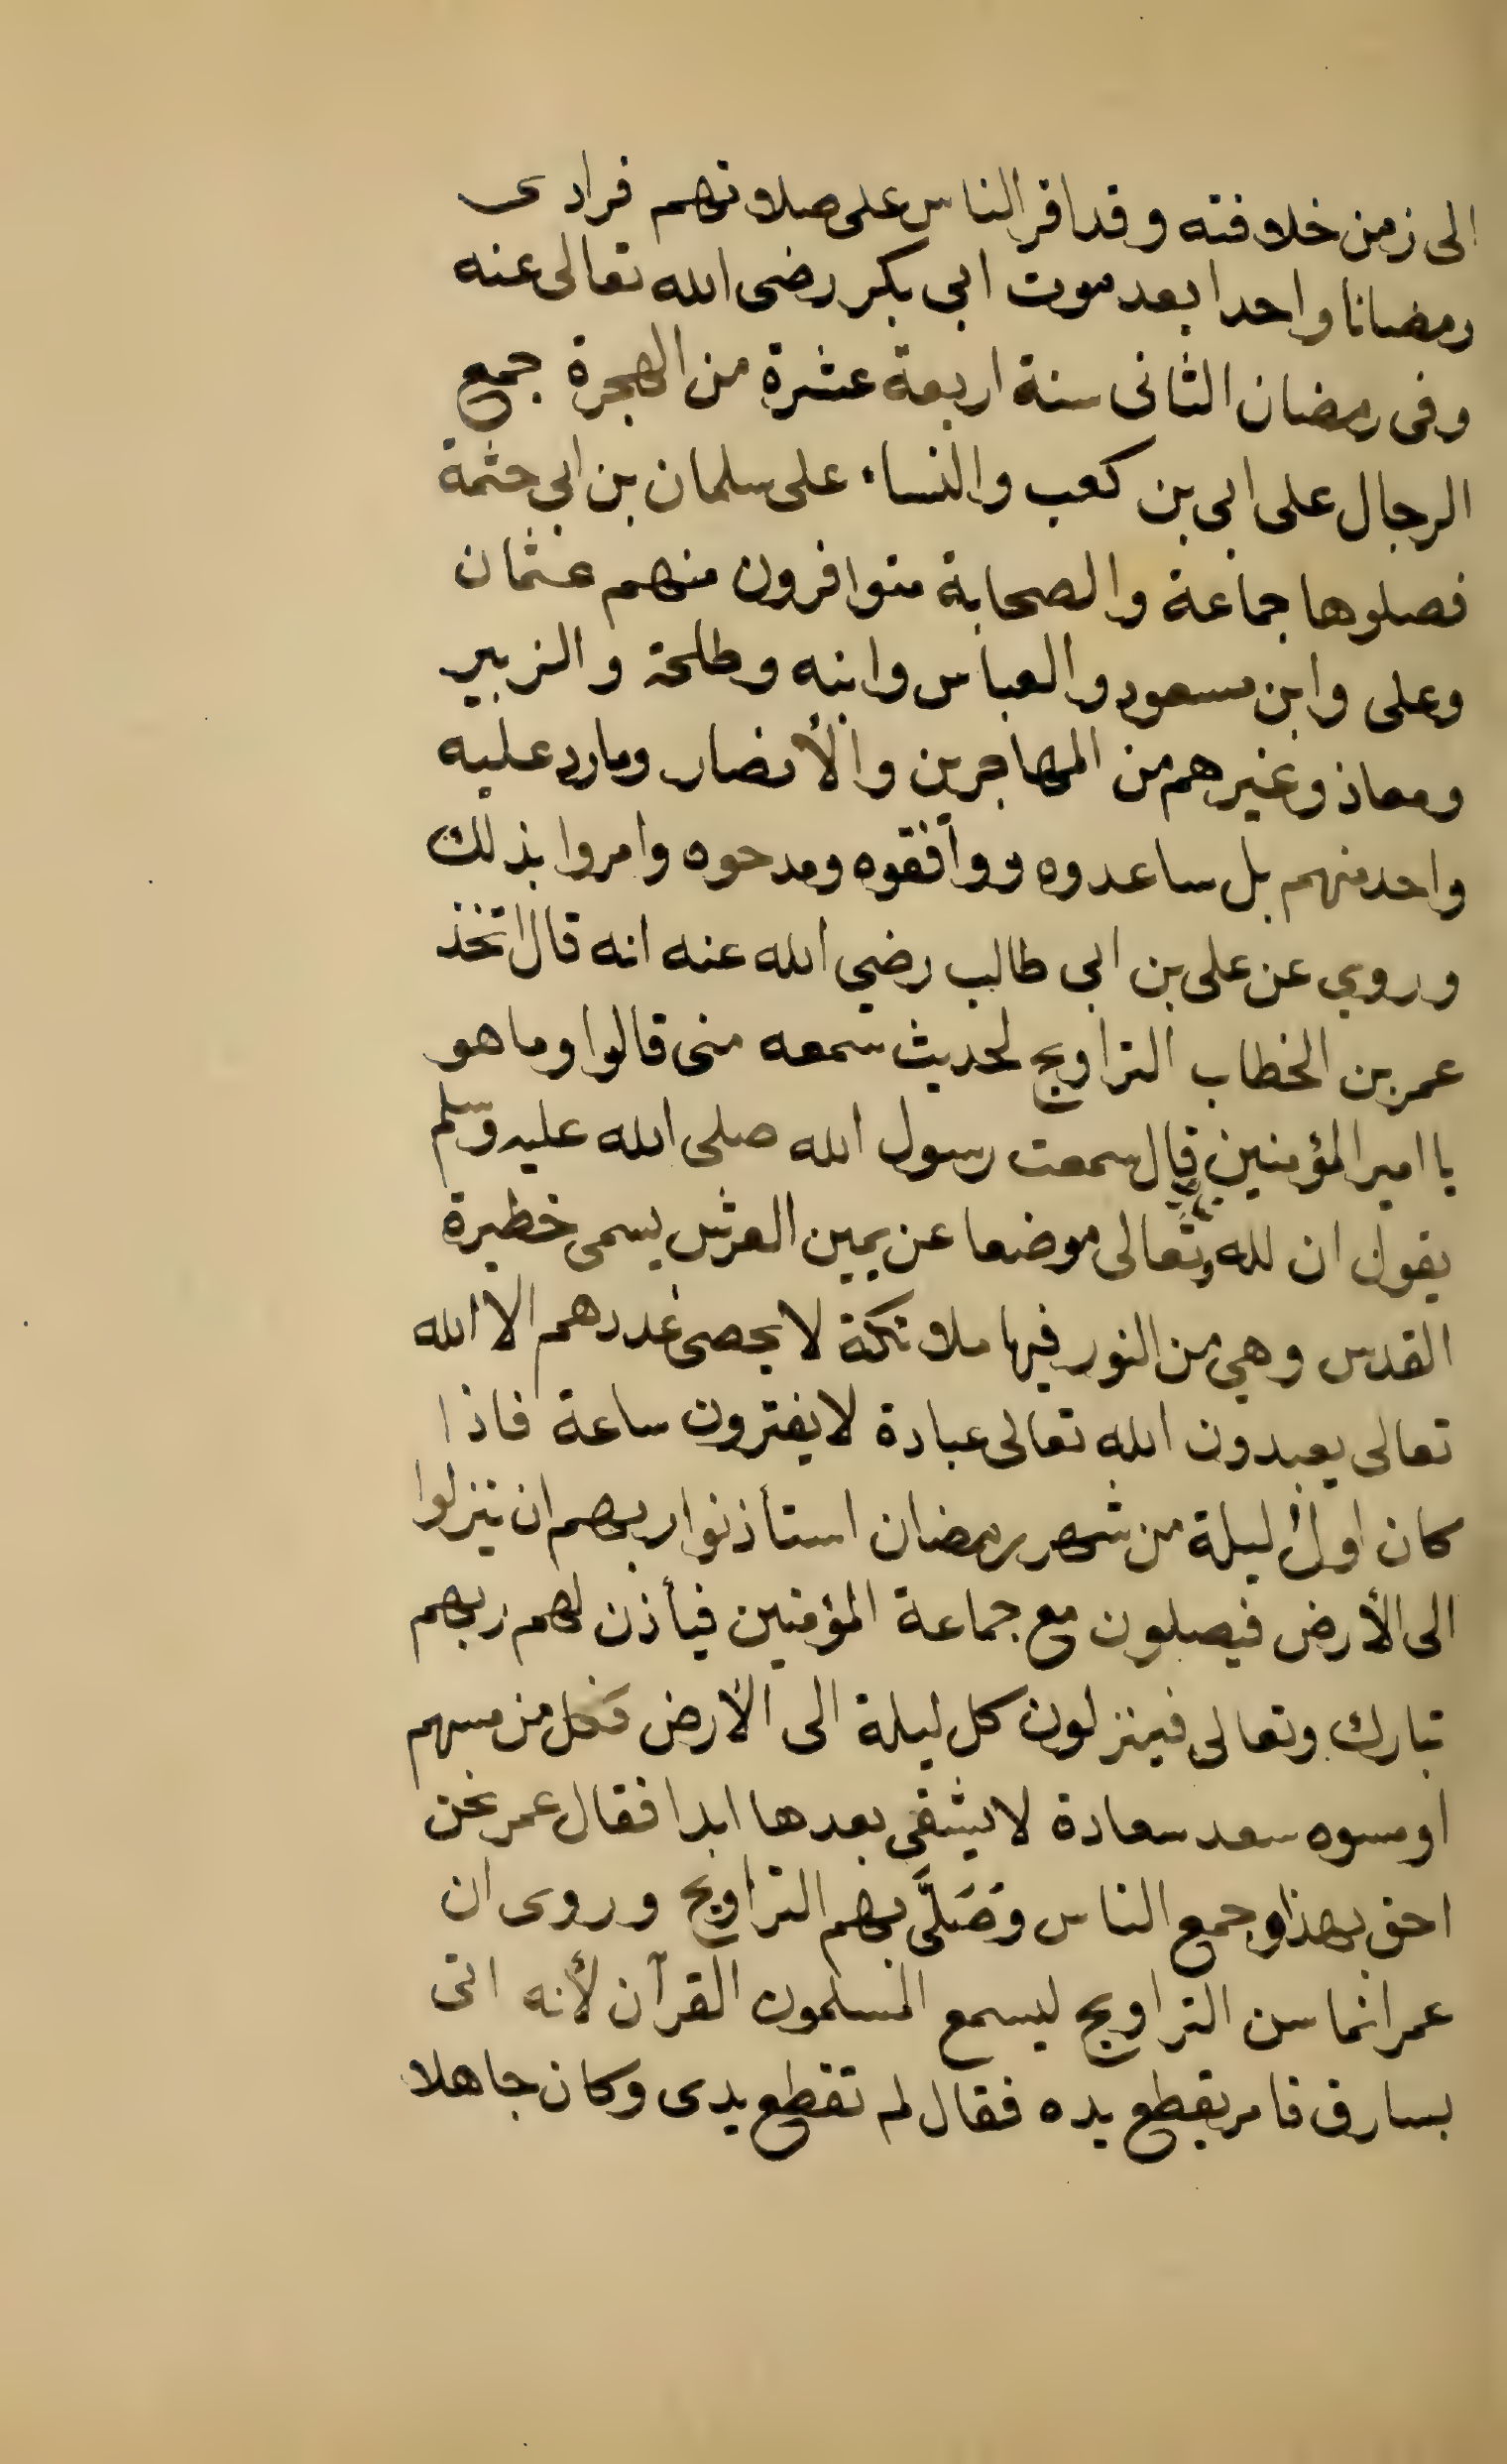 الى زمن خلافته وقد اقر الناس على صلاتهم فرادى
رمضانا واحدا بعد موت ابى بكر رضى الله تعالى عنه
وفى رمضان الثانى سنة اربعة عشرة من الهجرة جمع
الرجال على ابى بن كعب والنساء على سلمان بن ابى حثمة
فصلوها جماعة والصحابة متوافرون منهم عثمان
وعلى وابن مسعود والعباس وابنه وطلحة والزبير
ومعاذ وغيرهم من المهاجرين والأنصار وما رد عليه
واحد منهم بل ساعدوه ووافقوه ومدحوه وامروا بذلك
وروي عن على بن ابى طالب رضي الله عنه انه قال اتخذ
عمر بن الخطاب التراويح لحديث سمعه منى قالوا وما هو
يا امير المؤمنين قال سمعت رسول الله صلى الله عليه وسلم
يقول ان لله تعالى موضعا عن يمين العرش يسمى خطيرة
القدس وهي من النور فيها ملائكة لا يحصى عددهم الا الله
تعالى يعبدون الله تعالى عبادة لا يفترون ساعة فاذا
كان اول ليلة من شهر رمضان استأذنوا ربهم ان ينزلوا
الى الأرض فيصلون مع جماعة المؤمنين فيأذن لهم ربهم
تبارك وتعالى فينزلون كل ليلة الى الأرض فكل من مسهم
او مسوه سعد سعادة لا يشقى بعدها ابدا فقال عمر نحن
احق بهذا وجمع الناس وَصَلَّى بهم التراويح وروى ان
عمر انما سن التراويح ليسمع المسلمون القرآن لأنه اتى
بسارق فامر بقطع يده فقال لم تقطع يدى وكان جاهلا